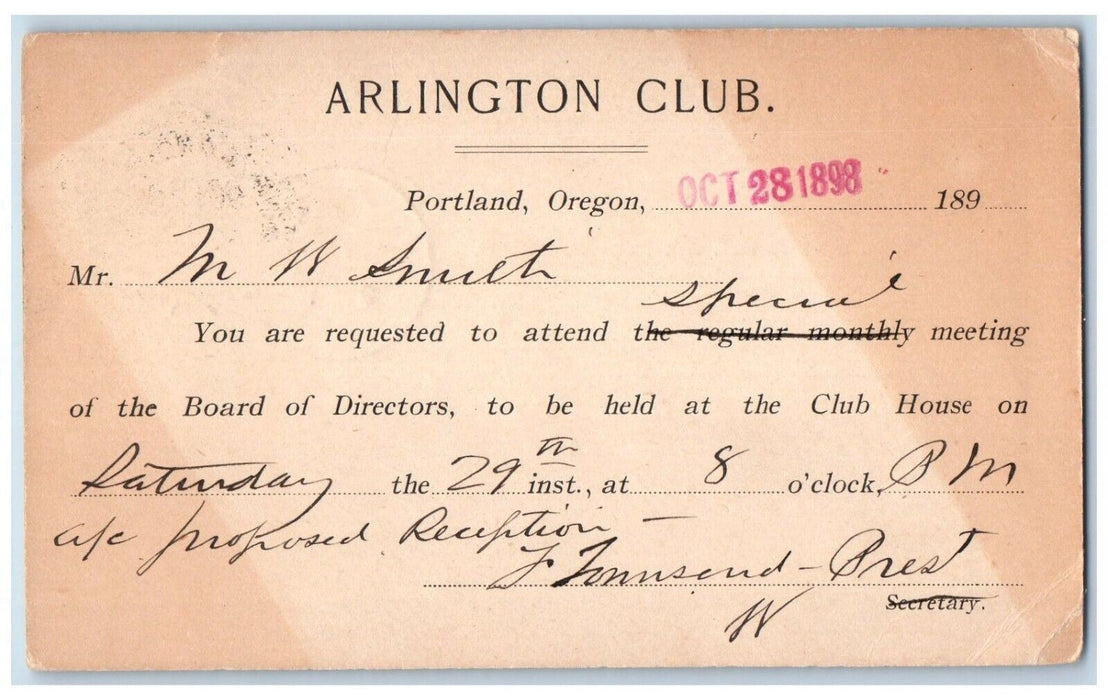 ARLINGTON CLUB.
Portland, Oregon, OCT 28 1898 189
Mr. M W Smith
special
You are requested to attend the regular monthly meeting
of the Board of Directors, to be held at the Club House on
Saturday the 29th inst., at 8 o'clock, P M
a/c proposed Reception —
F Townsend - Prest
Secretary.
W